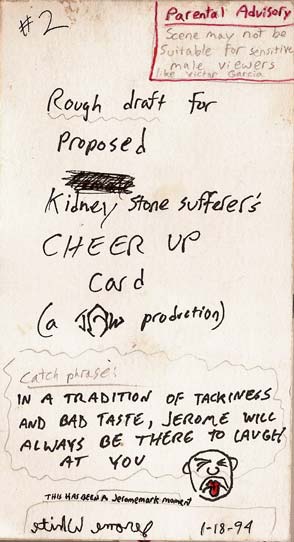 #2
Parental Advisory
Scene may not be
Suitable for sensitive
male viewers
like Victor Garcia
Rough draft for
Proposed
Kidney stone sufferer's
CHEER UP
Card
(a production)
Catch phrase:
IN A TRADITION OF TACKINESS
AND BAD TASTE, JEROME WILL
ALWAYS BE THERE TO LAUGH
AT YOU
THIS HAS BEEN A Jeromemark moment
Jerome White 1-18-94